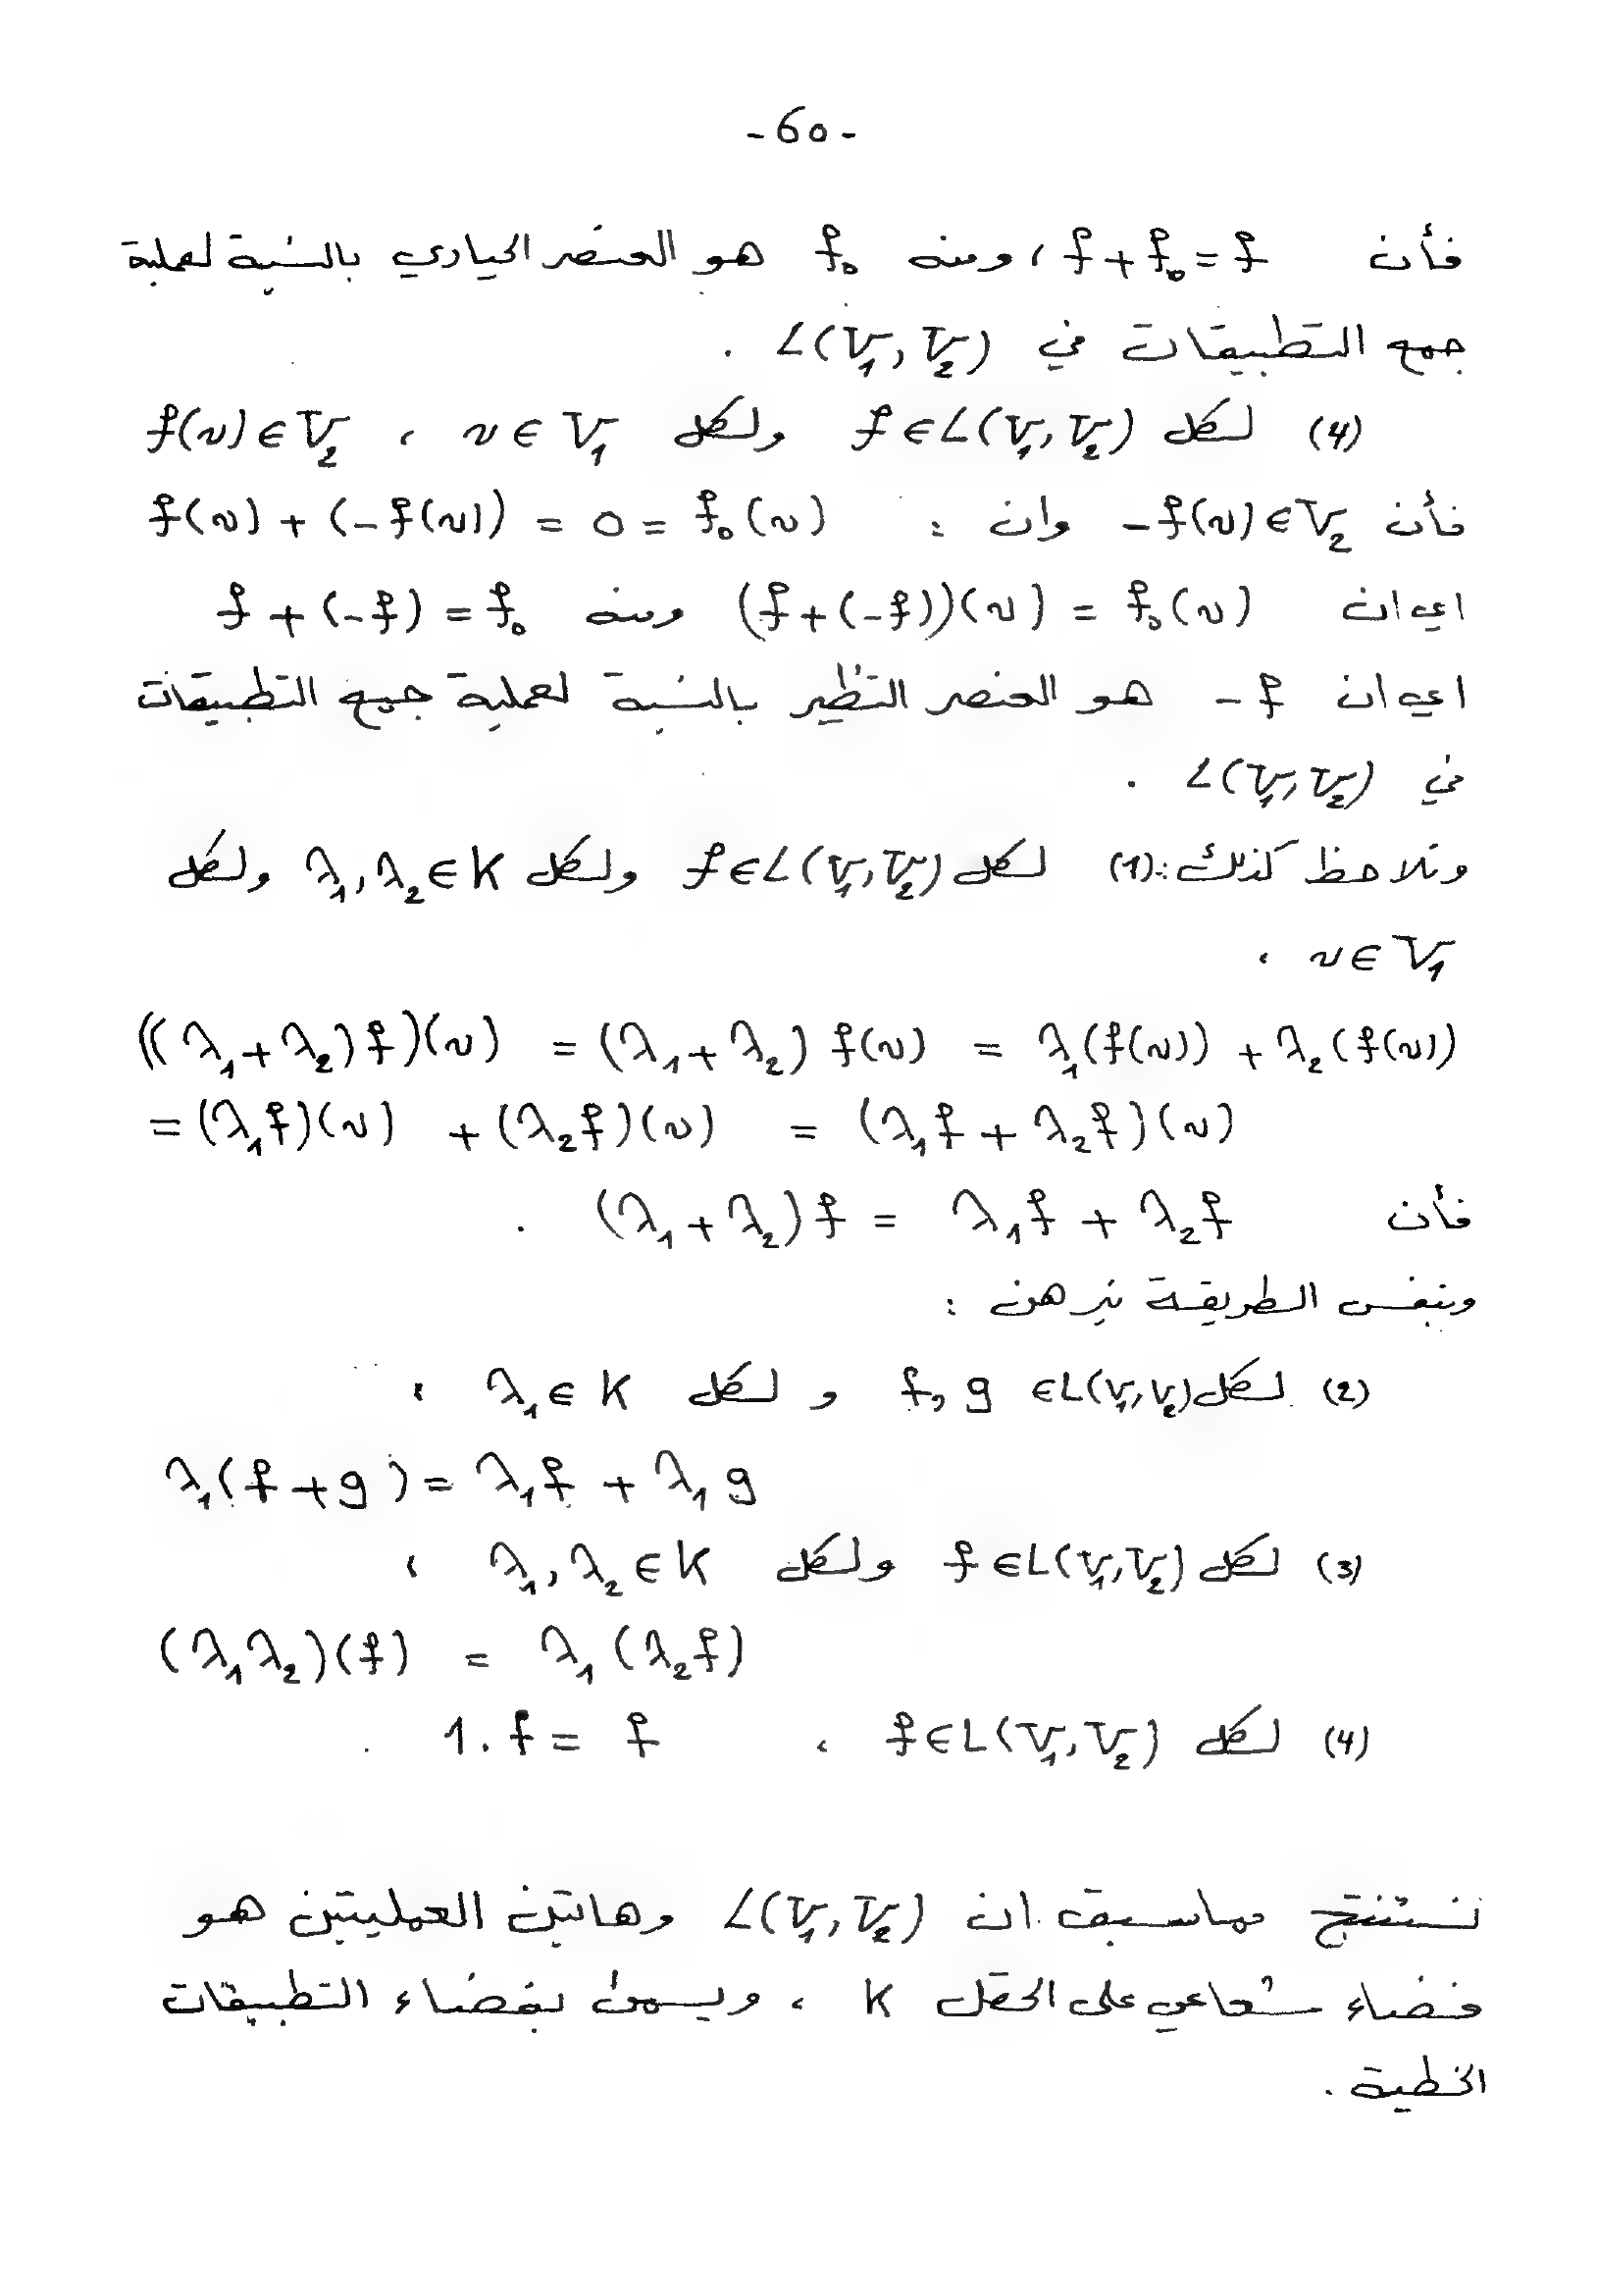 -60-
فأن f+f₀=f ، ومنه f₀ هو العنصر الحيادي بالنسبة لعملية
جمع التطبيقات في L(V₁,V₂) .
(4) لكل f∈L(V₁,V₂) ولكل v∈V₁ ، f(v)∈V₂
فأن -f(v)∈V₂ وان : f(v)+(-f(v)) = 0 = f₀(v)
اي ان (f+(-f))(v) = f₀(v) ومنه f+(-f) = f₀
اي ان -f هو العنصر النظير بالنسبة لعملية جمع التطبيقات
في L(V₁,V₂) .
ونلاحظ كذلك : (1) لكل f∈L(V₁,V₂) ولكل λ₁,λ₂∈K ولكل
v∈V₁ ،
((λ₁+λ₂)f)(v) = (λ₁+λ₂) f(v) = λ₁(f(v)) + λ₂(f(v))
= (λ₁f)(v) + (λ₂f)(v) = (λ₁f + λ₂f)(v)
فأن (λ₁+λ₂)f = λ₁f + λ₂f .
وبنفس الطريقة نبرهن :
(2) لكل f,g ∈L(V₁,V₂) و لكل λ₁∈K ،
λ₁(f+g) = λ₁f + λ₁g
(3) لكل f∈L(V₁,V₂) ولكل λ₁,λ₂∈K ،
(λ₁λ₂)(f) = λ₁(λ₂f)
(4) لكل f∈L(V₁,V₂) ، 1.f = f .
نستنتج مماسبق ان L(V₁,V₂) وهاتين العمليتين هو
فضاء شعاعي على الحقل K ، ويسمى بفضاء التطبيقات
الخطية .